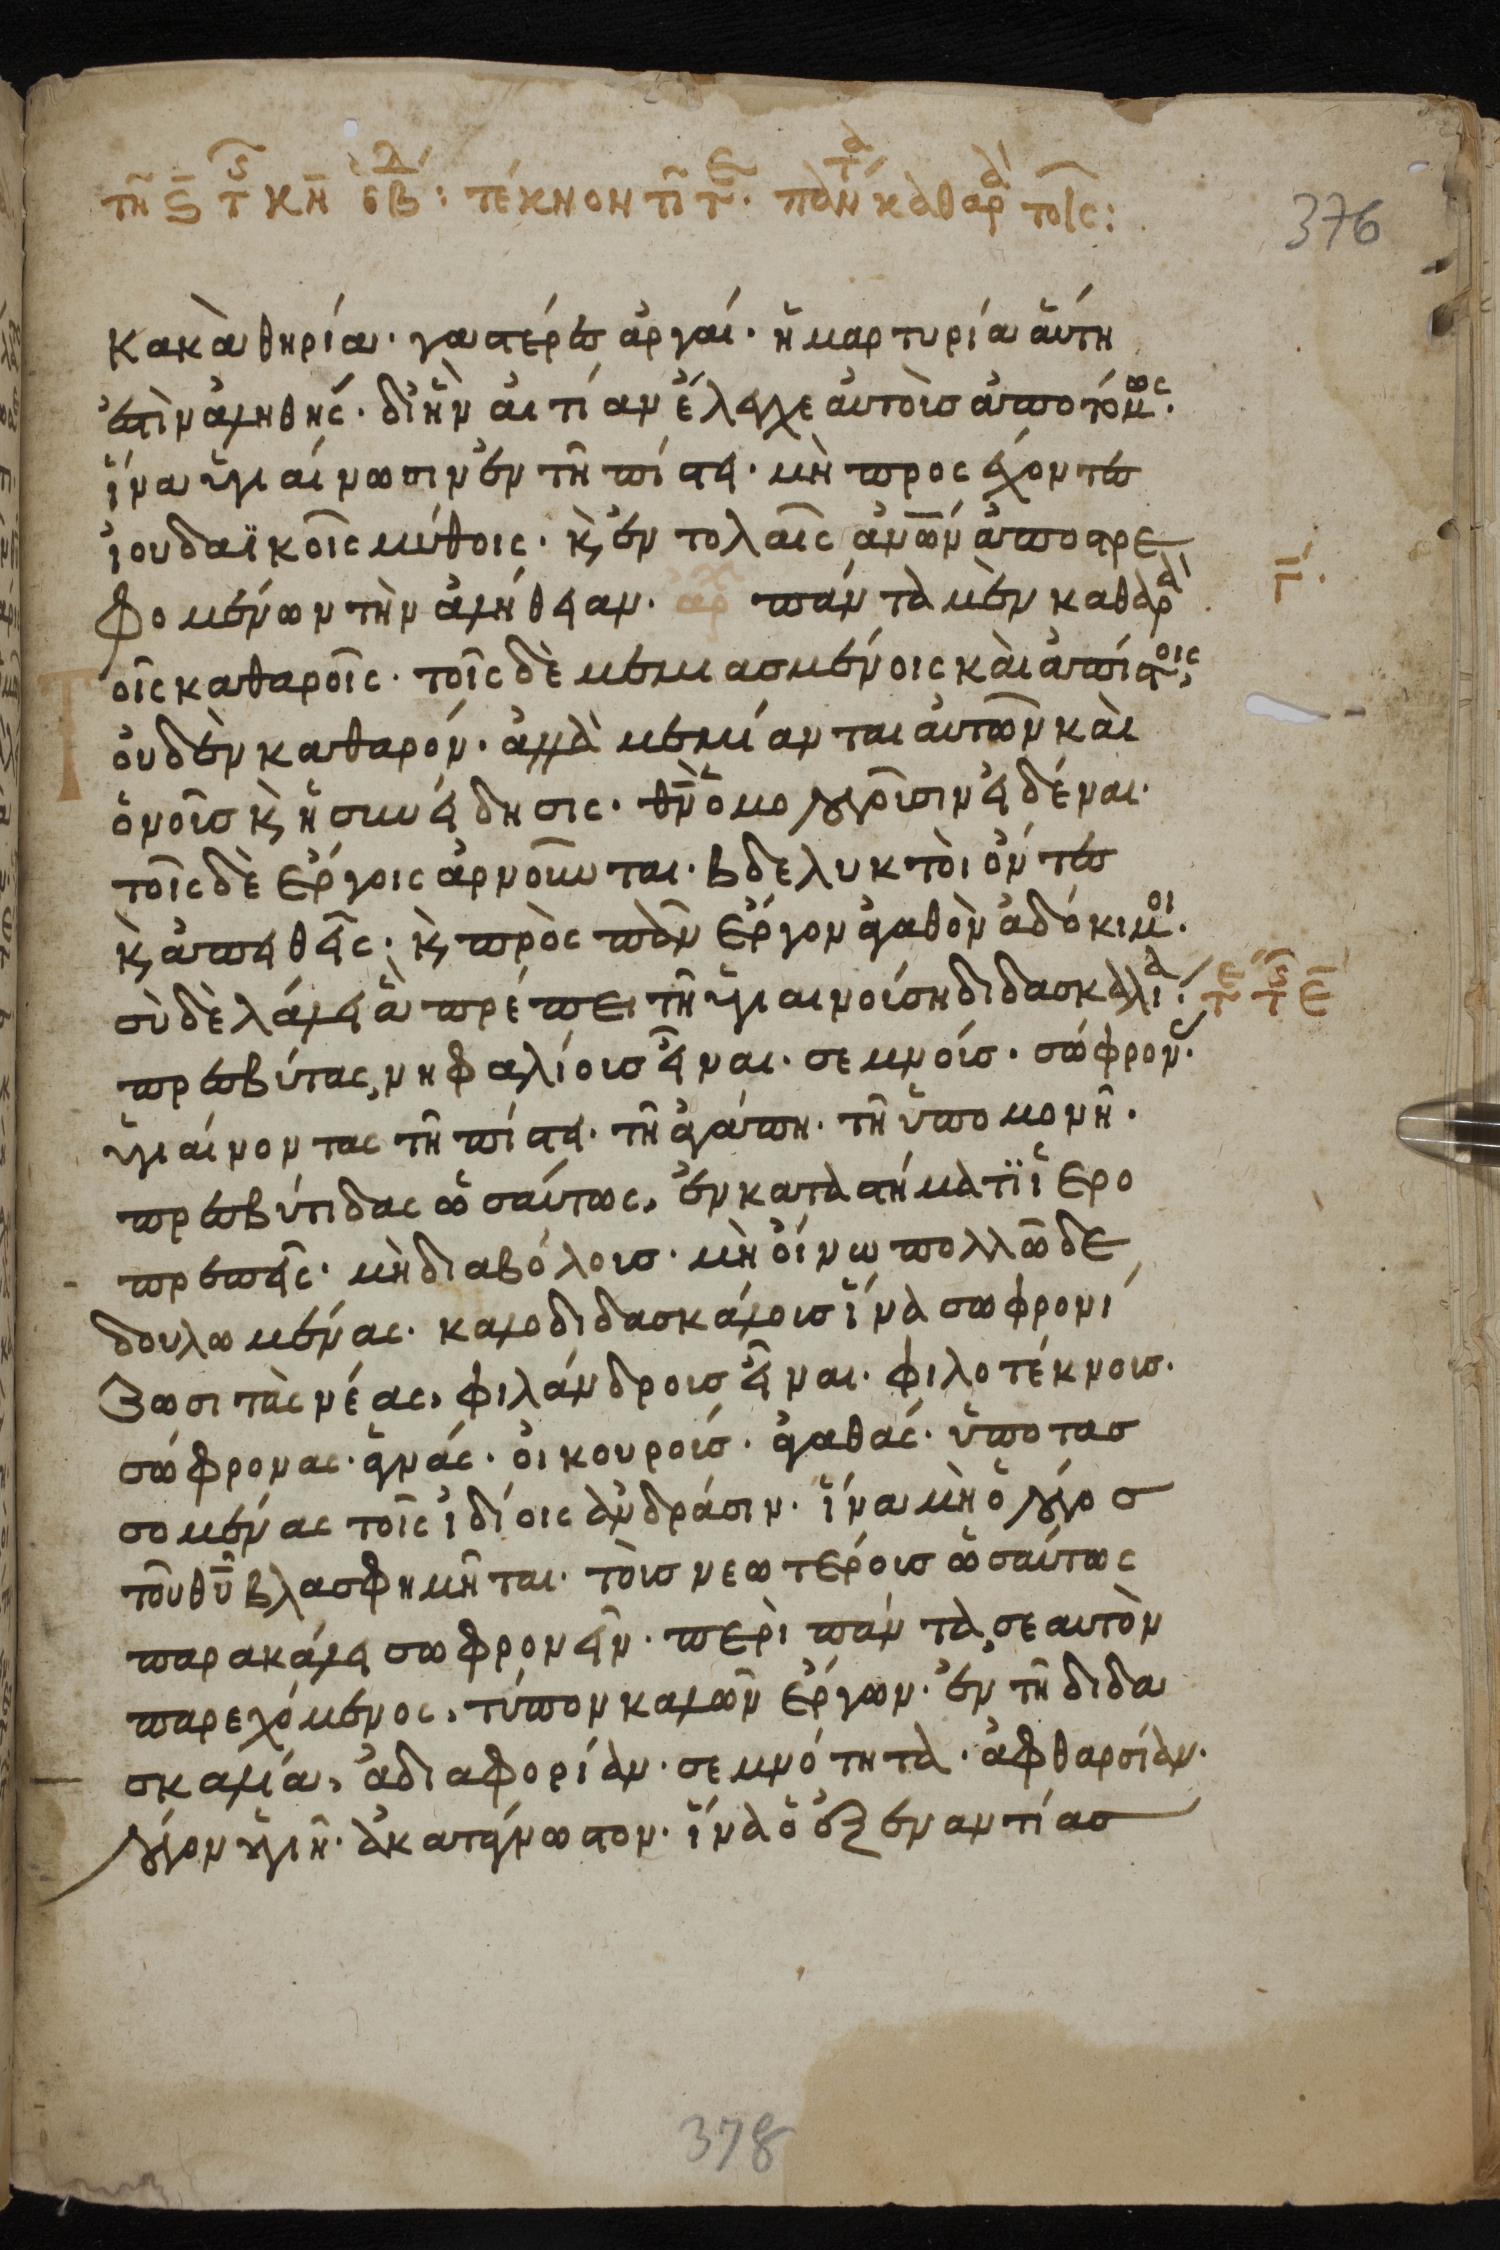 τῆ ς τ κη εβ: τέκνον τι τ. πάντα καθαρὰ τοῖς:
376
κακὰ θηρία· γαστέρες ἀργαί· ἡ μαρτυρία αὕτη
ἐστὶν ἀληθής· δι ἣν αἰτίαν ἔλεγχε αὐτοὺσ ἀποτόμως·
ἵνα ὑγιαίνωσιν ἐν τῆ πίστει· μὴ προσέχοντες
ἰουδαϊκοῖς μύθοις· κ ἐντολαῖς ἀνῶν ἀποστρε
φομένων τὴν ἀλήθειαν· ἀρχ πάντα μὲν καθαρὰ
γ.
Τοῖς καθαροῖς· τοῖς δὲ μεμιασμένοις καὶ ἀπίστοις,
οὐδὲν καθαρόν· ἀλλὰ μεμίανται αὐτῶν καὶ
ὁ νοῦσ κ ἡ συνείδησις· θν ὁμολογοῦσιν εἰδέναι·
τοῖς δὲ ἔργοις ἀρνοῦνται· βδελυκτοὶ ὄντες
κ ἀπειθεῖς· κ πρὸς πᾶν ἔργον ἀγαθὸν ἀδόκιμοι·
σὺ δὲ λάλει ἃ πρέπει τῆ ὑγιαινούση διδασκαλία·
τε τς ε
πρεσβύτας, νηφαλίουσ εἶναι· σεμνούσ· σώφρονας·
ὑγιαίνοντας τῆ πίστει· τῆ ἀγάπη· τῆ ὑπομονῆ·
πρεσβύτιδας ὡσαύτως, ἐν καταστήματϊ ἱερο
πρεπεῖς· μὴ διαβόλουσ· μὴ οἴνω πολλῶ δε
δουλωμένας· καλοδιδασκάλουσ ἵνα σωφρονί
ζωσι τὰς νέας, φιλάνδρουσ εἶναι· φιλοτέκνουσ·
σώφρονας· ἁγνάς· οἰκουρούσ· ἀγαθάς· ὑποτασ
σομένας τοῖς ἰδίοις ἀνδράσιν· ἵνα μὴ ὁ λόγοσ
τοῦ θῦ βλασφημῆται· τοὺσ νεωτέρουσ ὡσαύτως
παρακάλει σωφρονεῖν· περὶ πάντα, σεαυτὸν
παρεχόμενος, τύπον καλῶν ἔργων· ἐν τῆ διδα
σκαλία, ἀδιαφορίαν· σεμνότητα· ἀφθαρσίαν·
λόγον ὑγιῆ· ἀκατάγνωστον· ἵνα ὁ ἐξ ἐναντίασ
378